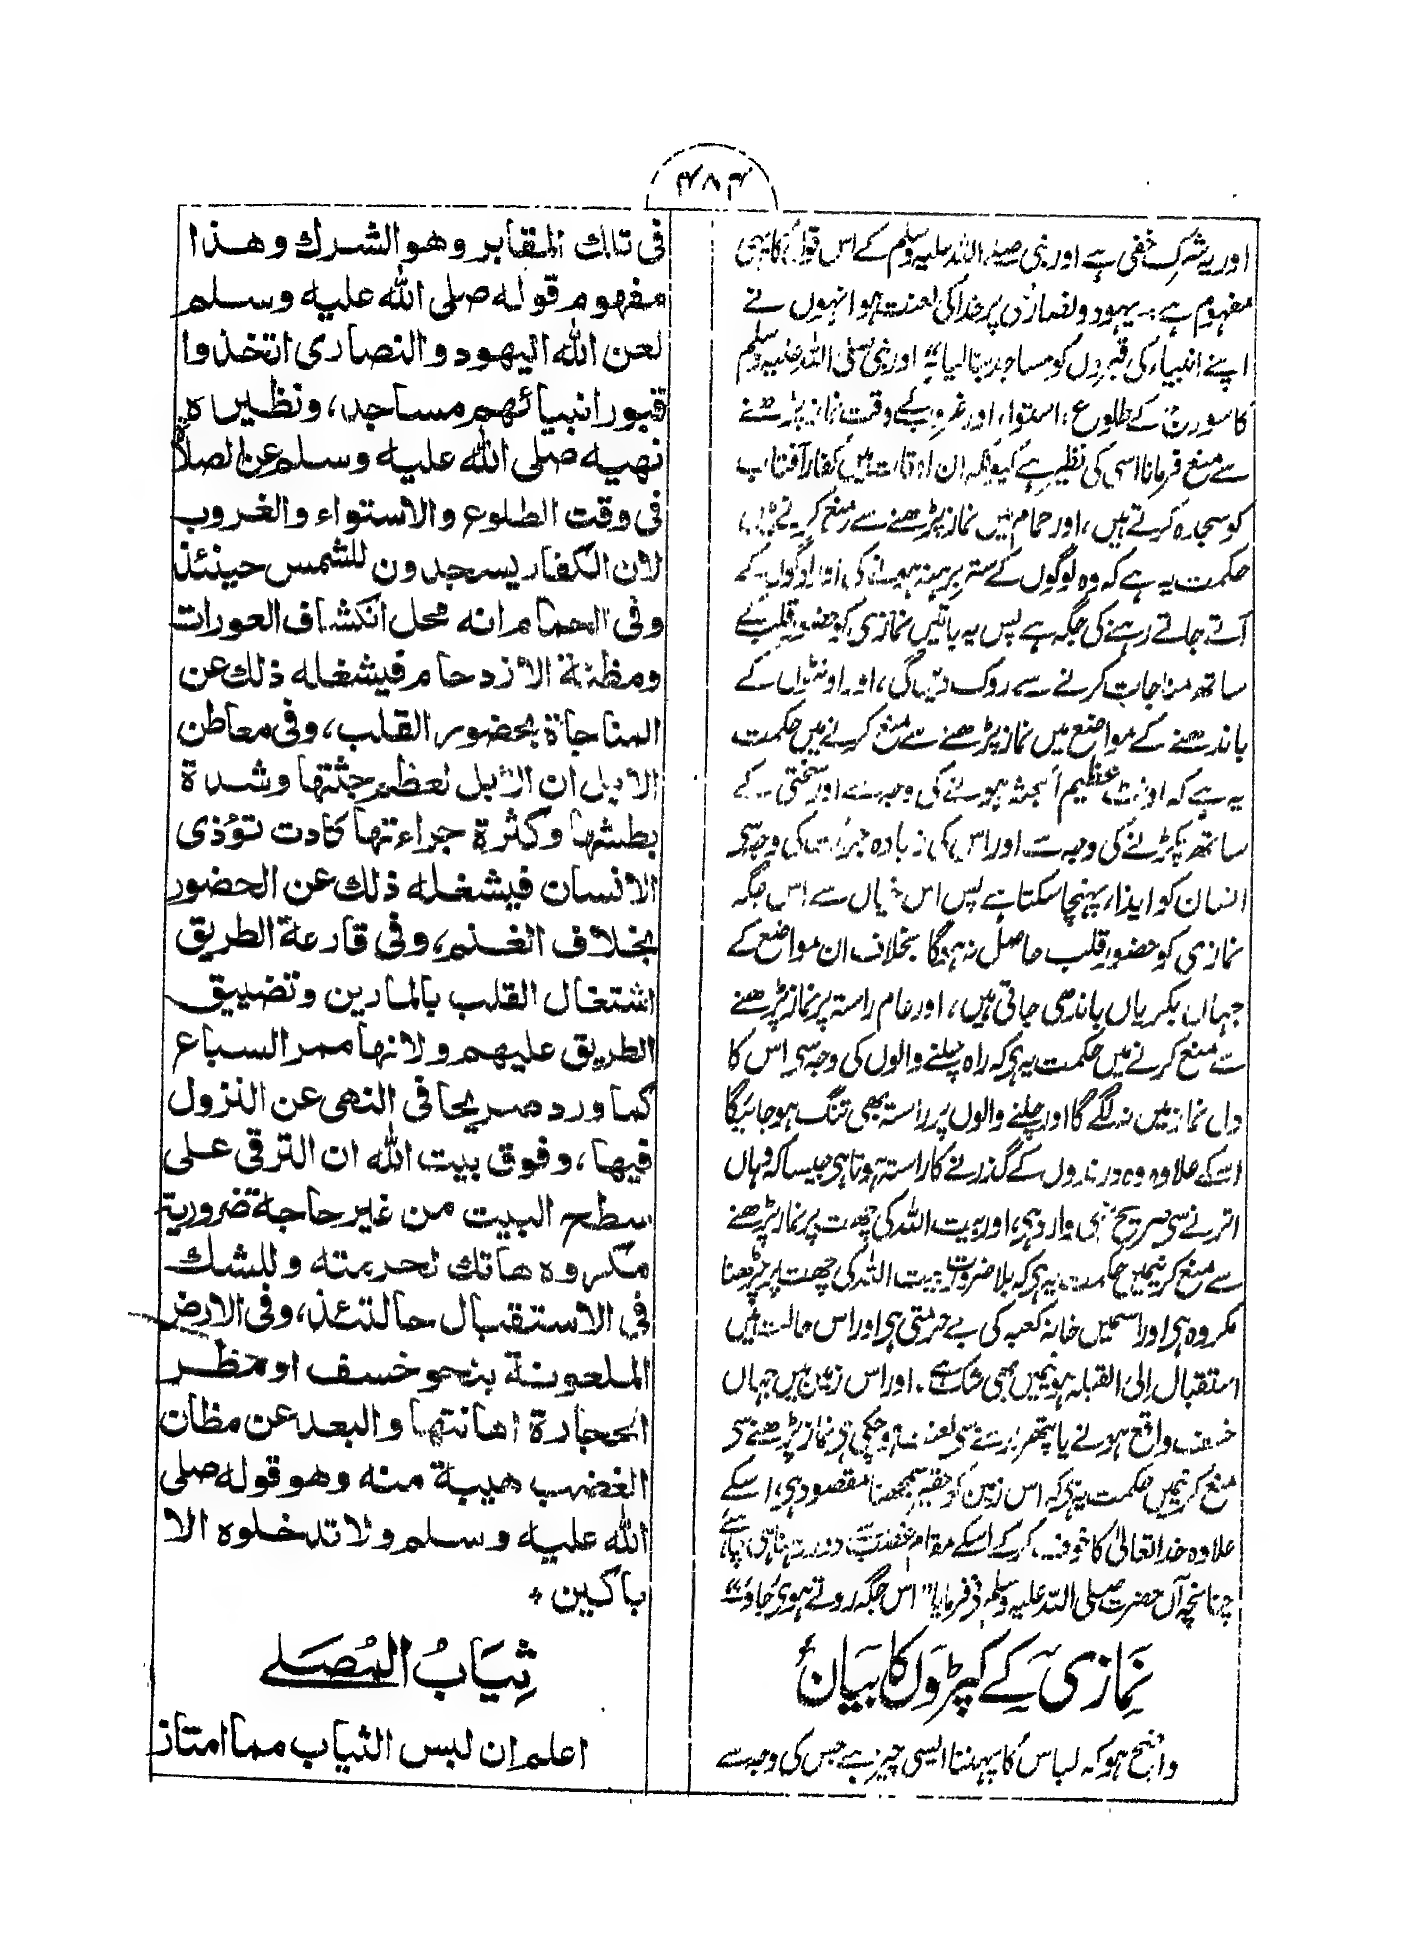 ۴۸۴
اور یہ شرک خفی ہے اور نبی صلی اللہ علیہ وسلم کے اس قول کا یہی
مفہوم ہے: یہود و نصاریٰ پر خدا کی لعنت ہو انہوں نے
اپنے انبیاء کی قبروں کو مساجد بنا لیا" اور نبی صلی اللہ علیہ وسلم
کا سورج کے طلوع، استواء، اور غروب کے وقت نماز پڑھنے
سے منع فرمانا اسی کی نظیر ہے کیونکہ ان اوقات میں کفار آفتاب
کو سجدہ کرتے ہیں، اور حمام میں نماز پڑھنے سے منع کرنے میں
حکمت یہ ہے کہ وہ لوگوں کے ستر برہنہ ہونے کی اور لوگوں کے
آتے جاتے رہنے کی جگہ ہے پس یہ باتیں نمازی کو حضور قلب کے
ساتھ مناجات کرنے سے روک دیں گی، اور اونٹوں کے
باندھنے کے مواضع میں نماز پڑھنے سے منع کرنے میں حکمت
یہ ہے کہ اونٹ عظیم الجثہ ہونے کی وجہ سے اور سختی کے
ساتھ پکڑنے کی وجہ سے اور اس کی زیادہ جرأت کی وجہ سی
انسان کو ایذاء پہنچا سکتا ہے پس اس خیال سے اس جگہ
نمازی کو حضور قلب حاصل نہ ہوگا بخلاف ان مواضع کے
جہاں بکریاں باندھی جاتی ہیں، اور عام راستہ پر نماز پڑھنے
سے منع کرنے میں حکمت یہ ہی کہ راہ چلنے والوں کی وجہ سی اس کا
دل نماز میں نہ لگے گا اور چلنے والوں پر راستہ بھی تنگ ہو جائیگا
اسکے علاوہ وہ درندوں کے گذرنے کا راستہ ہوتا ہی جیسا کہ وہاں
اترنے سی صریح نہی وارد ہی، اور بیت اللہ کی چھت پر نماز پڑھنے
سے منع کرنیمیں حکمت یہ ہی کہ بلا ضرورت بیت اللہ کی چھت پر چڑھنا
مکروہ ہی اور اسمیں خانہ کعبہ کی بے حرمتی ہی اور اس حالت میں
استقبال الی القبلہ ہونیمیں بھی شک ہے، اور اس زمین میں جہاں
خسف واقع ہونے یا پتھر برسنے سی لعنت ہو چکی ہی نماز پڑھنے سی
منع کرنیمیں حکمت یہ ہی کہ اس زمین کو حقیر سمجھنا مقصود ہی، اسکے
علاوہ خدا تعالیٰ کا خوف کر کے اسکے مقام غضب سے دور رہنا ہی چاہئے
چنانچہ آں حضرت صلی اللہ علیہ وسلم نی فرمایا" اس جگہ روتے ہوئی جاؤ"
نمازی کے کپڑوں کا بیان
واضح ہو کہ لباس کا پہننا ایسی چیز ہے جس کی وجہ سے
فی تلك المقابر وهو الشرك وهذا
مفهوم قوله صلى الله عليه وسلم
لعن الله اليهود والنصارى اتخذوا
قبور انبيائهم مساجد، ونظيره
نهيه صلى الله عليه وسلم عن الصلاة
فى وقت الطلوع والاستواء والغروب
لان الكفار يسجدون للشمس حينئذ
وفى الحمام انه محل انكشاف العورات
ومظنة الازدحام فيشغله ذلك عن
المناجاة بحضور القلب، وفى معاطن
الابل ان الابل لعظم جثتها وشدة
بطشها وكثرة جراءتها كادت تؤذى
الانسان فيشغله ذلك عن الحضور
بخلاف الغنم، وفى قارعة الطريق
اشتغال القلب بالمارين وتضييق
الطريق عليهم ولانها ممر السباع
كما ورد صريحا فى النهى عن النزول
فيها، وفوق بيت الله ان الترقى على
سطح البيت من غير حاجة ضرورية
مكروه هاتك لحرمته وللشك
فى الاستقبال حالتئذ، وفى الارض
الملعونة بنحو خسف او مطر
الحجارة اهانتها والبعد عن مظان
الغضب هيبة منه وهو قوله صلى
الله عليه وسلم ولا تدخلوه الا
باكين +
ثِيَابُ المُصَلّي
اعلم ان لبس الثياب مما امتاز